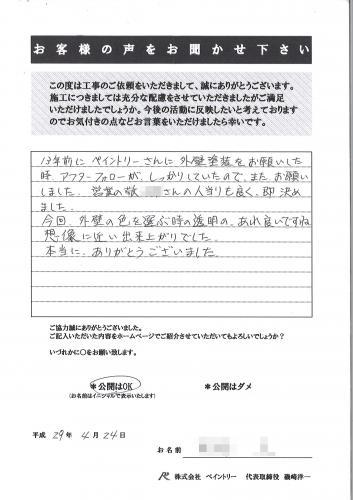 お客様の声をお聞かせ下さい
この度は工事のご依頼をいただきまして、誠にありがとうございます。
施工につきましては充分な配慮をさせていただきましたがご満足
いただけましたでしょうか。今後の活動に反映したいと考えております
のでお気付きの点などお言葉をいただけましたら幸いです。
13年前にペイントリーさんに外壁塗装をお願いした
時、アフターフォローが、しっかりしていたので、また、お願い
しました。営業の敬 さんの人当りも良く、即決め
ました。
今回、外壁の色を選ぶ時の透明の、あれ良いですね
想像に近い出来上がりでした。
本当に、ありがとうございました。
ご協力誠にありがとうございました。
ご記入いただいた内容をホームページでご紹介させていただいてもよろしいでしょうか?
いづれかに○をお願い致します。
*公開はOK *公開はダメ
(お名前はイニシャルで表示いたします)
平成 29年 4月 24日
お名前
株式会社 ペイントリー 代表取締役 磯崎洋一